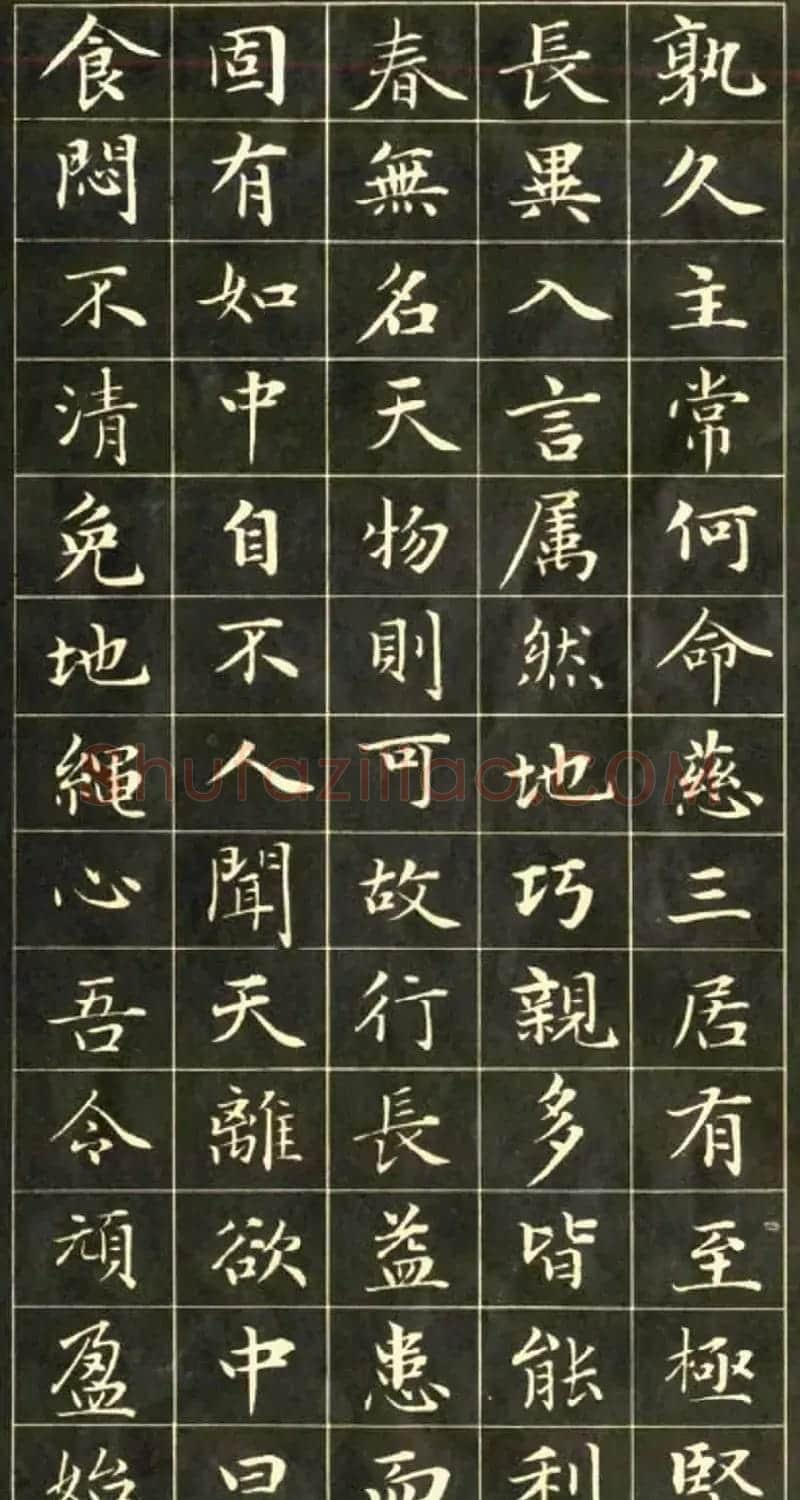 孰久主常何命慈三居有至極堅
長異入言属然地巧親多皆能利
春無名天物則可故行長益患而
固有如中自不人聞天離欲中曰
食悶不清免地繩心吾令頑盈始
Shufaziliao.COM